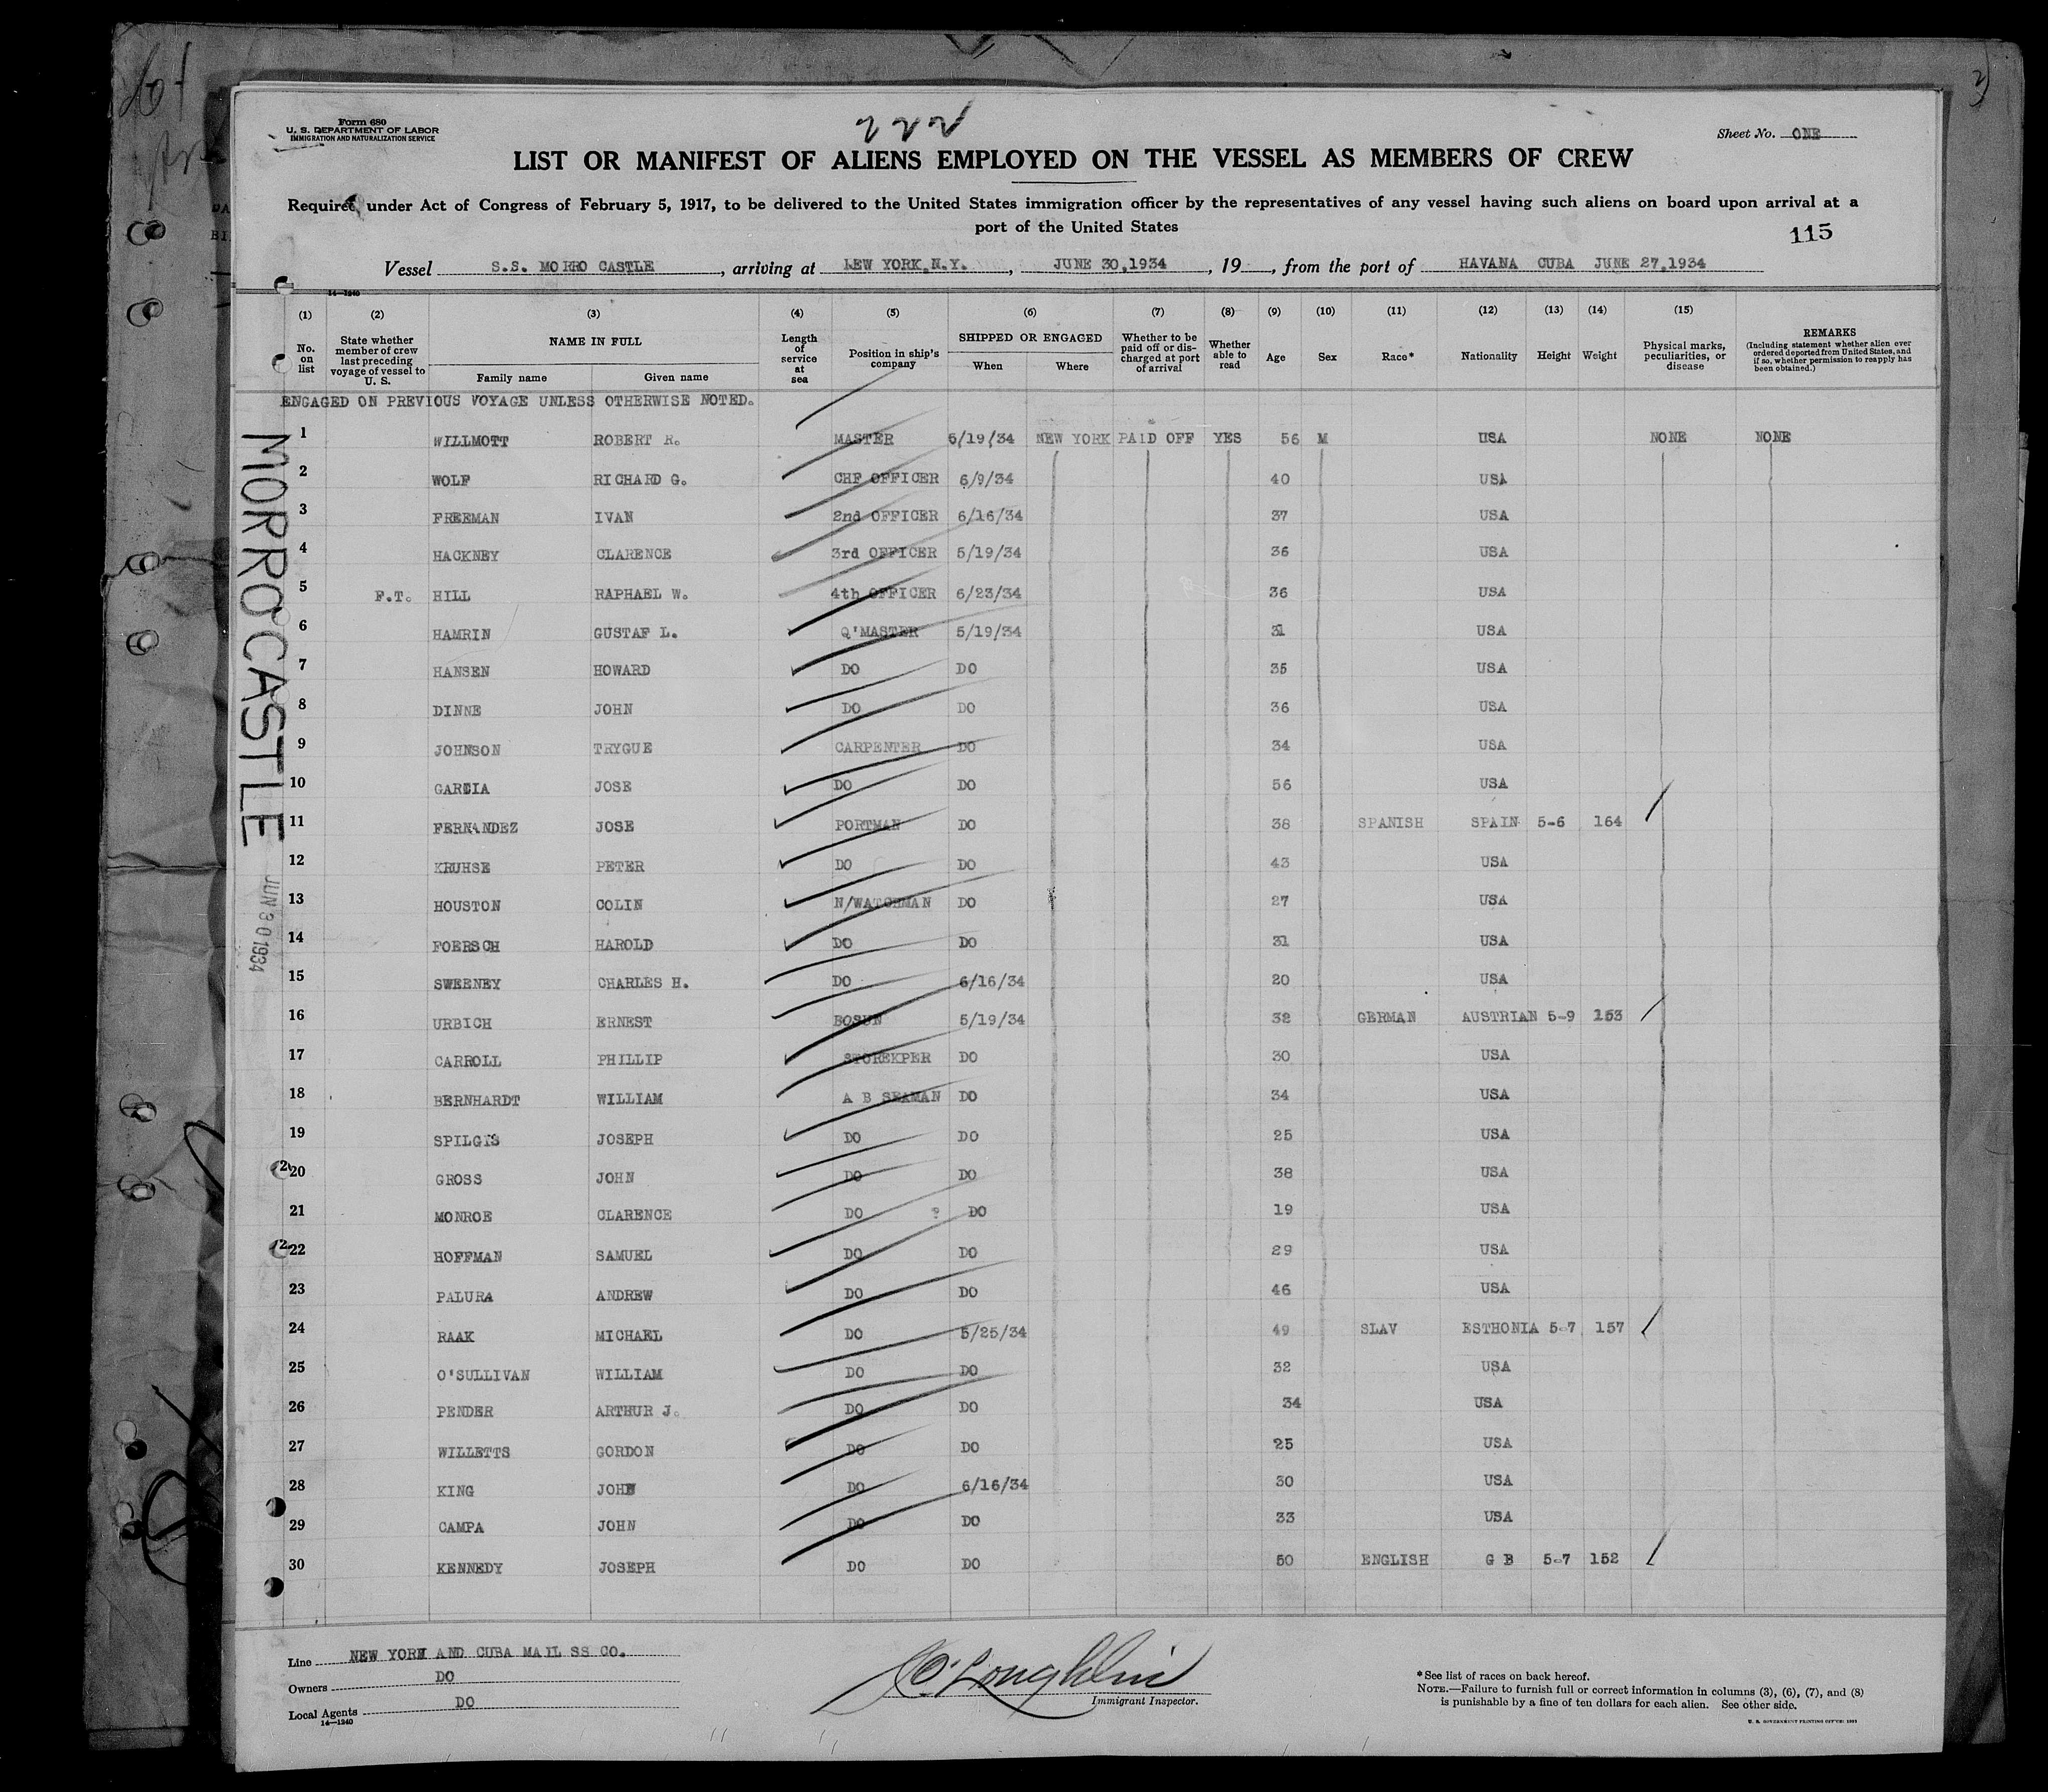 Form 680
U. S. DEPARTMENT OF LABOR
IMMIGRATION AND NATURALIZATION SERVICE
222
Sheet No. ONE
LIST OR MANIFEST OF ALIENS EMPLOYED ON THE VESSEL AS MEMBERS OF CREW
Required under Act of Congress of February 5, 1917, to be delivered to the United States immigration officer by the representatives of any vessel having such aliens on board upon arrival at a
port of the United States
115
Vessel S.S. MORRO CASTLE, arriving at NEW YORK,N.Y., JUNE 30,1934, 19 , from the port of HAVANA CUBA JUNE 27,1934
14—1240
(1) No. on list
(2) State whether member of crew last preceding voyage of vessel to U. S.
(3) NAME IN FULL Family name Given name
(4) Length of service at sea
(5) Position in ship's company
(6) SHIPPED OR ENGAGED When Where
(7) Whether to be paid off or discharged at port of arrival
(8) Whether able to read
(9) Age
(10) Sex
(11) Race*
(12) Nationality
(13) Height
(14) Weight
(15) Physical marks, peculiarities, or disease
REMARKS (Including statement whether alien ever ordered deported from United States, and if so, whether permission to reapply has been obtained.)
ENGAGED ON PREVIOUS VOYAGE UNLESS OTHERWISE NOTED.
1 WILLMOTT ROBERT R. MASTER 5/19/34 NEW YORK PAID OFF YES 56 M USA NONE NONE
2 WOLF RICHARD G. CHF OFFICER 6/9/34 40 USA
3 FREEMAN IVAN 2nd OFFICER 6/16/34 37 USA
4 HACKNEY CLARENCE 3rd OFFICER 5/19/34 36 USA
5 F.T. HILL RAPHAEL W. 4th OFFICER 6/23/34 36 USA
6 HAMRIN GUSTAF L. Q'MASTER 5/19/34 31 USA
7 HANSEN HOWARD DO DO 35 USA
8 DINNE JOHN DO DO 36 USA
9 JOHNSON TRYGUE CARPENTER DO 34 USA
10 GARCIA JOSE DO DO 56 USA
11 FERNANDEZ JOSE PORTMAN DO 38 SPANISH SPAIN 5-6 164
12 KRUHSE PETER DO DO 43 USA
13 HOUSTON COLIN N/WATCHMAN DO 27 USA
14 FOERSCH HAROLD DO DO 31 USA
15 SWEENEY CHARLES H. DO 6/16/34 20 USA
16 URBICH ERNEST BOSUN 5/19/34 32 GERMAN AUSTRIAN 5-9 153
17 CARROLL PHILLIP STOREKPER DO 30 USA
18 BERNHARDT WILLIAM A B SEAMAN DO 34 USA
19 SPILGIS JOSEPH DO DO 25 USA
20 GROSS JOHN DO DO 38 USA
21 MONROE CLARENCE DO ? DO 19 USA
22 HOFFMAN SAMUEL DO DO 29 USA
23 PALURA ANDREW DO DO 46 USA
24 RAAK MICHAEL DO 5/25/34 49 SLAV ESTHONIA 5-7 157
25 O'SULLIVAN WILLIAM DO DO 32 USA
26 PENDER ARTHUR J. DO DO 34 USA
27 WILLETTS GORDON DO DO 25 USA
28 KING JOHN DO 6/16/34 30 USA
29 CAMPA JOHN DO DO 33 USA
30 KENNEDY JOSEPH DO DO 50 ENGLISH G B 5-7 152
MORRO CASTLE
JUN 30 1934
Line NEW YORK AND CUBA MAIL SS CO.
Owners DO
Local Agents DO
14—1240
O'Loughlin
Immigrant Inspector.
*See list of races on back hereof.
NOTE.—Failure to furnish full or correct information in columns (3), (6), (7), and (8)
is punishable by a fine of ten dollars for each alien. See other side.